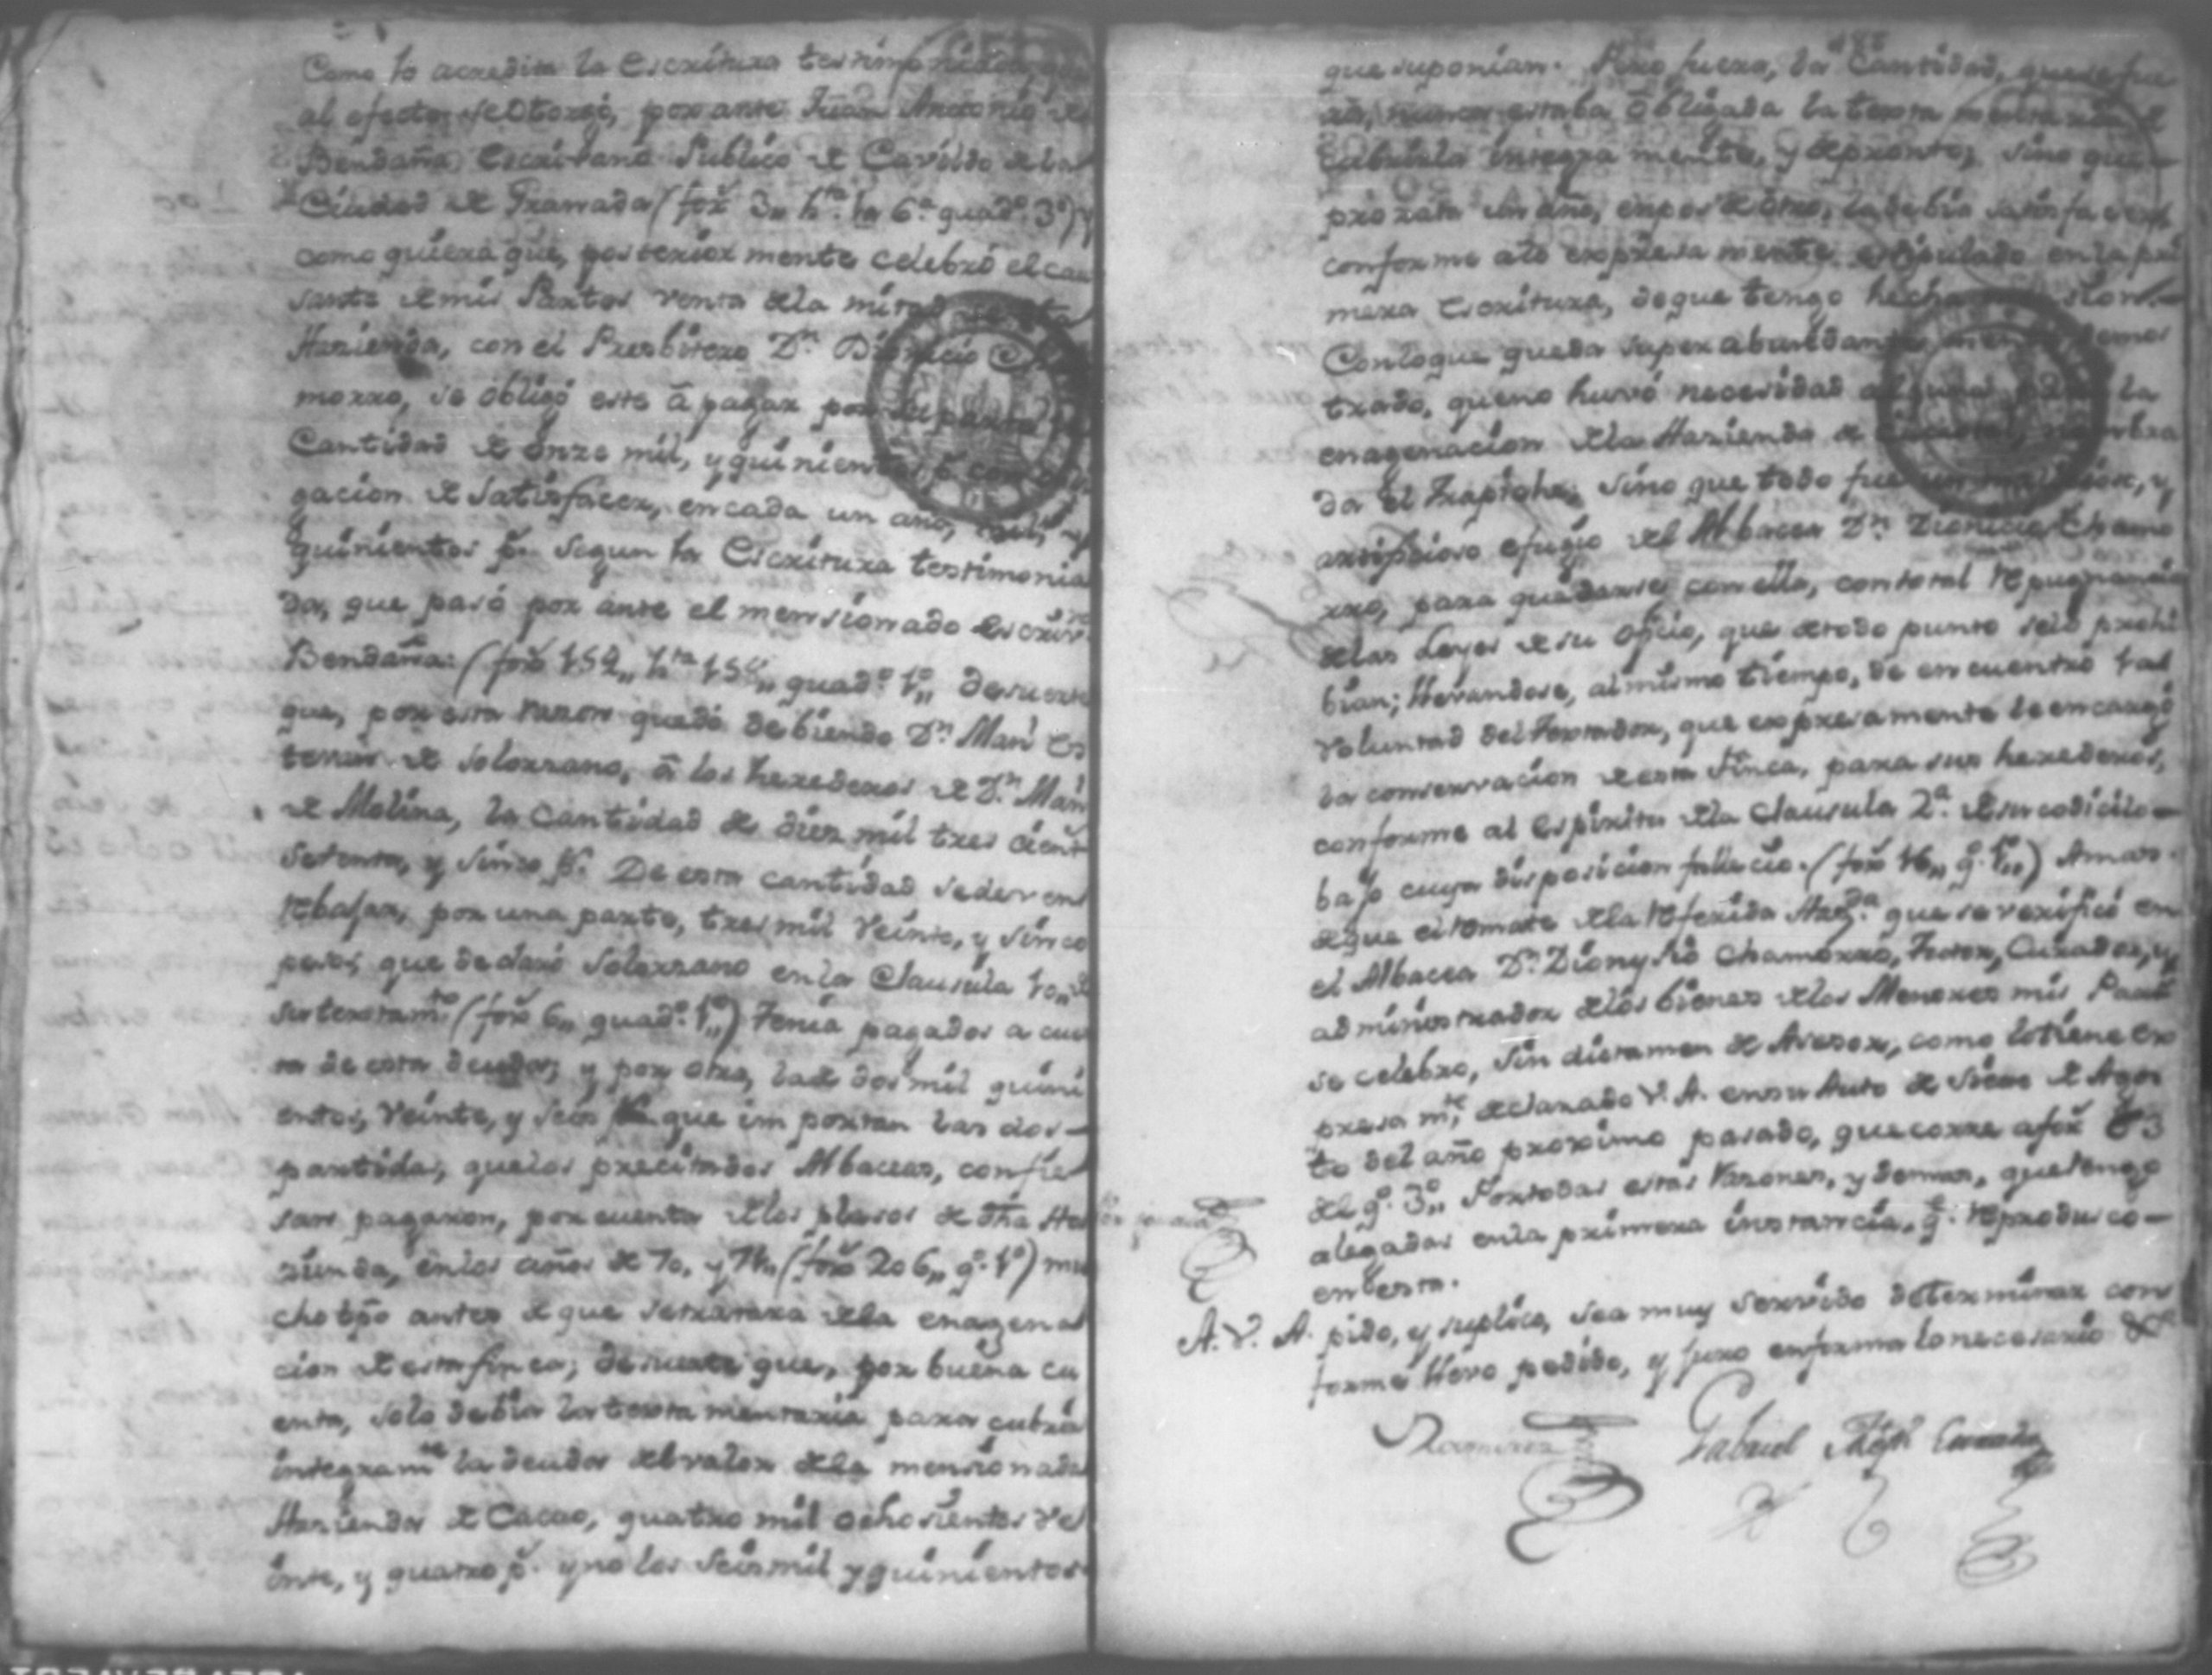 Como lo acredita la Escritura testimoniada, que
al efecto se otorgó, por ante Juan Antonio de
Bendaña Escribano Publico de Cavildo de la
Ciudad de Granada (fox. 3,, hta. la 6.a quad.o 3.o) y
como quiera que, posterior mente celebró el cau
sante de mis Partes venta de la mitad de
Hazienda, con el Presbitero Dn. Dionicio Cha
morro, se obligó este â pagar por su parte la
Cantidad de onze mil, y quinientos
gacion de satisfacer, en cada un año, mil, y
quinientos ps. segun la Escritura testimonia
da, que pasó por ante el mensionado Escriv.no
Bendaña: (fox. 152,, hta 158,, quad.o 1.o,, de suerte
que, por esta razon quedó debiendo Dn. Man.l Es
tevan de Solorzano, â los herederos de Dn. Man.l
de Molina, la Cantidad de diez mil tres cient.s
setenta, y sinco ps. De esta cantidad se deven
rebajar, por una parte, tres mil veinte, y sinco
pesos, que declaró Solorzano en la Clausula 10,, de
su testam.to (fox. 6,, quad.o 1.o,,) Tenia pagados a cuen
ta de esta deuda; y por otra, la de dos mil quini
entos, veinte, y seis ps. que importan las dos
partidas, que los precitados Albaceas, confie
san pagaron, por cuenta de los plasos de dha Ha
zienda, en los años de 70, y 71,, (fox. 206,, q.o 1.o) mu
cho tpo antes de que se tratara de la enagena
cion de esta finca; de suerte que, por buena cu
enta, solo debia la testamentaria para cubrir
integram.te la deuda del valor de la mensionada
Hazienda de Cacao, quatro mil ochosientos ve
inte, y quatro ps. y no los seis mil y quinientos
que suponian. Pero fuera, la Cantidad, que se fue
ra, nunca estaba obligada la testamentaria a
cubrirla integra mente, y de pronto, sino que
prorata un año, en pos de otro, la debia satisfacer
conforme a lo expresa mente estipulado en la pri
mera Escritura, de que tengo hecha
Con lo que queda superabundante mente demos
trado, que no huvó necesidad alguna para la
enagenacion de la Hazienda de
da el Trapiche; sino que todo fue
artificioso efugio del Albacea Dn. Dionicio Chamo
rro, para quedarse con ella, con total repugnancia
de las Leyes de su oficio, que de todo punto se lo prohi
bian; Hevandose, al mismo tiempo, de encuentro la
voluntad del Testador, que expresamente le encargó
la conservacion de esta Finca, para sus herederos,
conforme al Espiritu de la Clausula 2.a de su codicilo
bajo cuya disposicion fallecio. (fox. 16,, q.o 1.o,,) A mas
de que el remate de la referida Haz.da que se verificó en
el Albacea Dn. Dionysio Chamorro, Tutor, Curador, y
administrador de los bienes de los Menores mis Part.s
se celebro, sin dictamen de Asesor, como lo tiene ex
presa m.te declarado V. A. en su Auto de siete de Agos
to del año proximo pasado, que corre a fox. 83
del q.o 3.o,, Por todas estas razones, y demas, que tengo
alegadas en la primera instancia, q.e reprodusco
en esta.
A. V. A. pido, y suplico, sea muy servido determinar con
forme llevo pedido, y juro en forma lo necesario &a
Ramirez
Gabriel